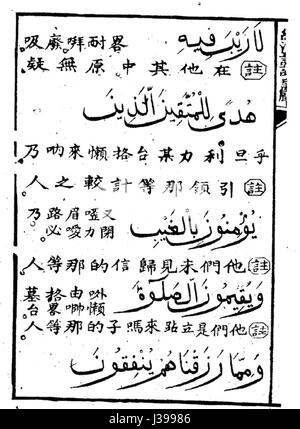 لَا رَيْبَ فِيهِ 畧耐哶廢吸
註 在他其中原無疑
هُدًى لِلْمُتَّقِينَ الَّذِينَ
乎旦利力其台格懶來吶乃
註 引領那等計較之人
يُؤْمِنُونَ بِالْغَيْبِ 又啞眉路乃
閉力愛必
註 他們未見歸信的那等人
وَيُقِيمُونَ الصَّلٰوةَ 由格墓
懶畧台
註 他們是立站來嗎子的那等人
وَمِمَّا رَزَقْنَاهُمْ يُنْفِقُونَ
alamy
J39986